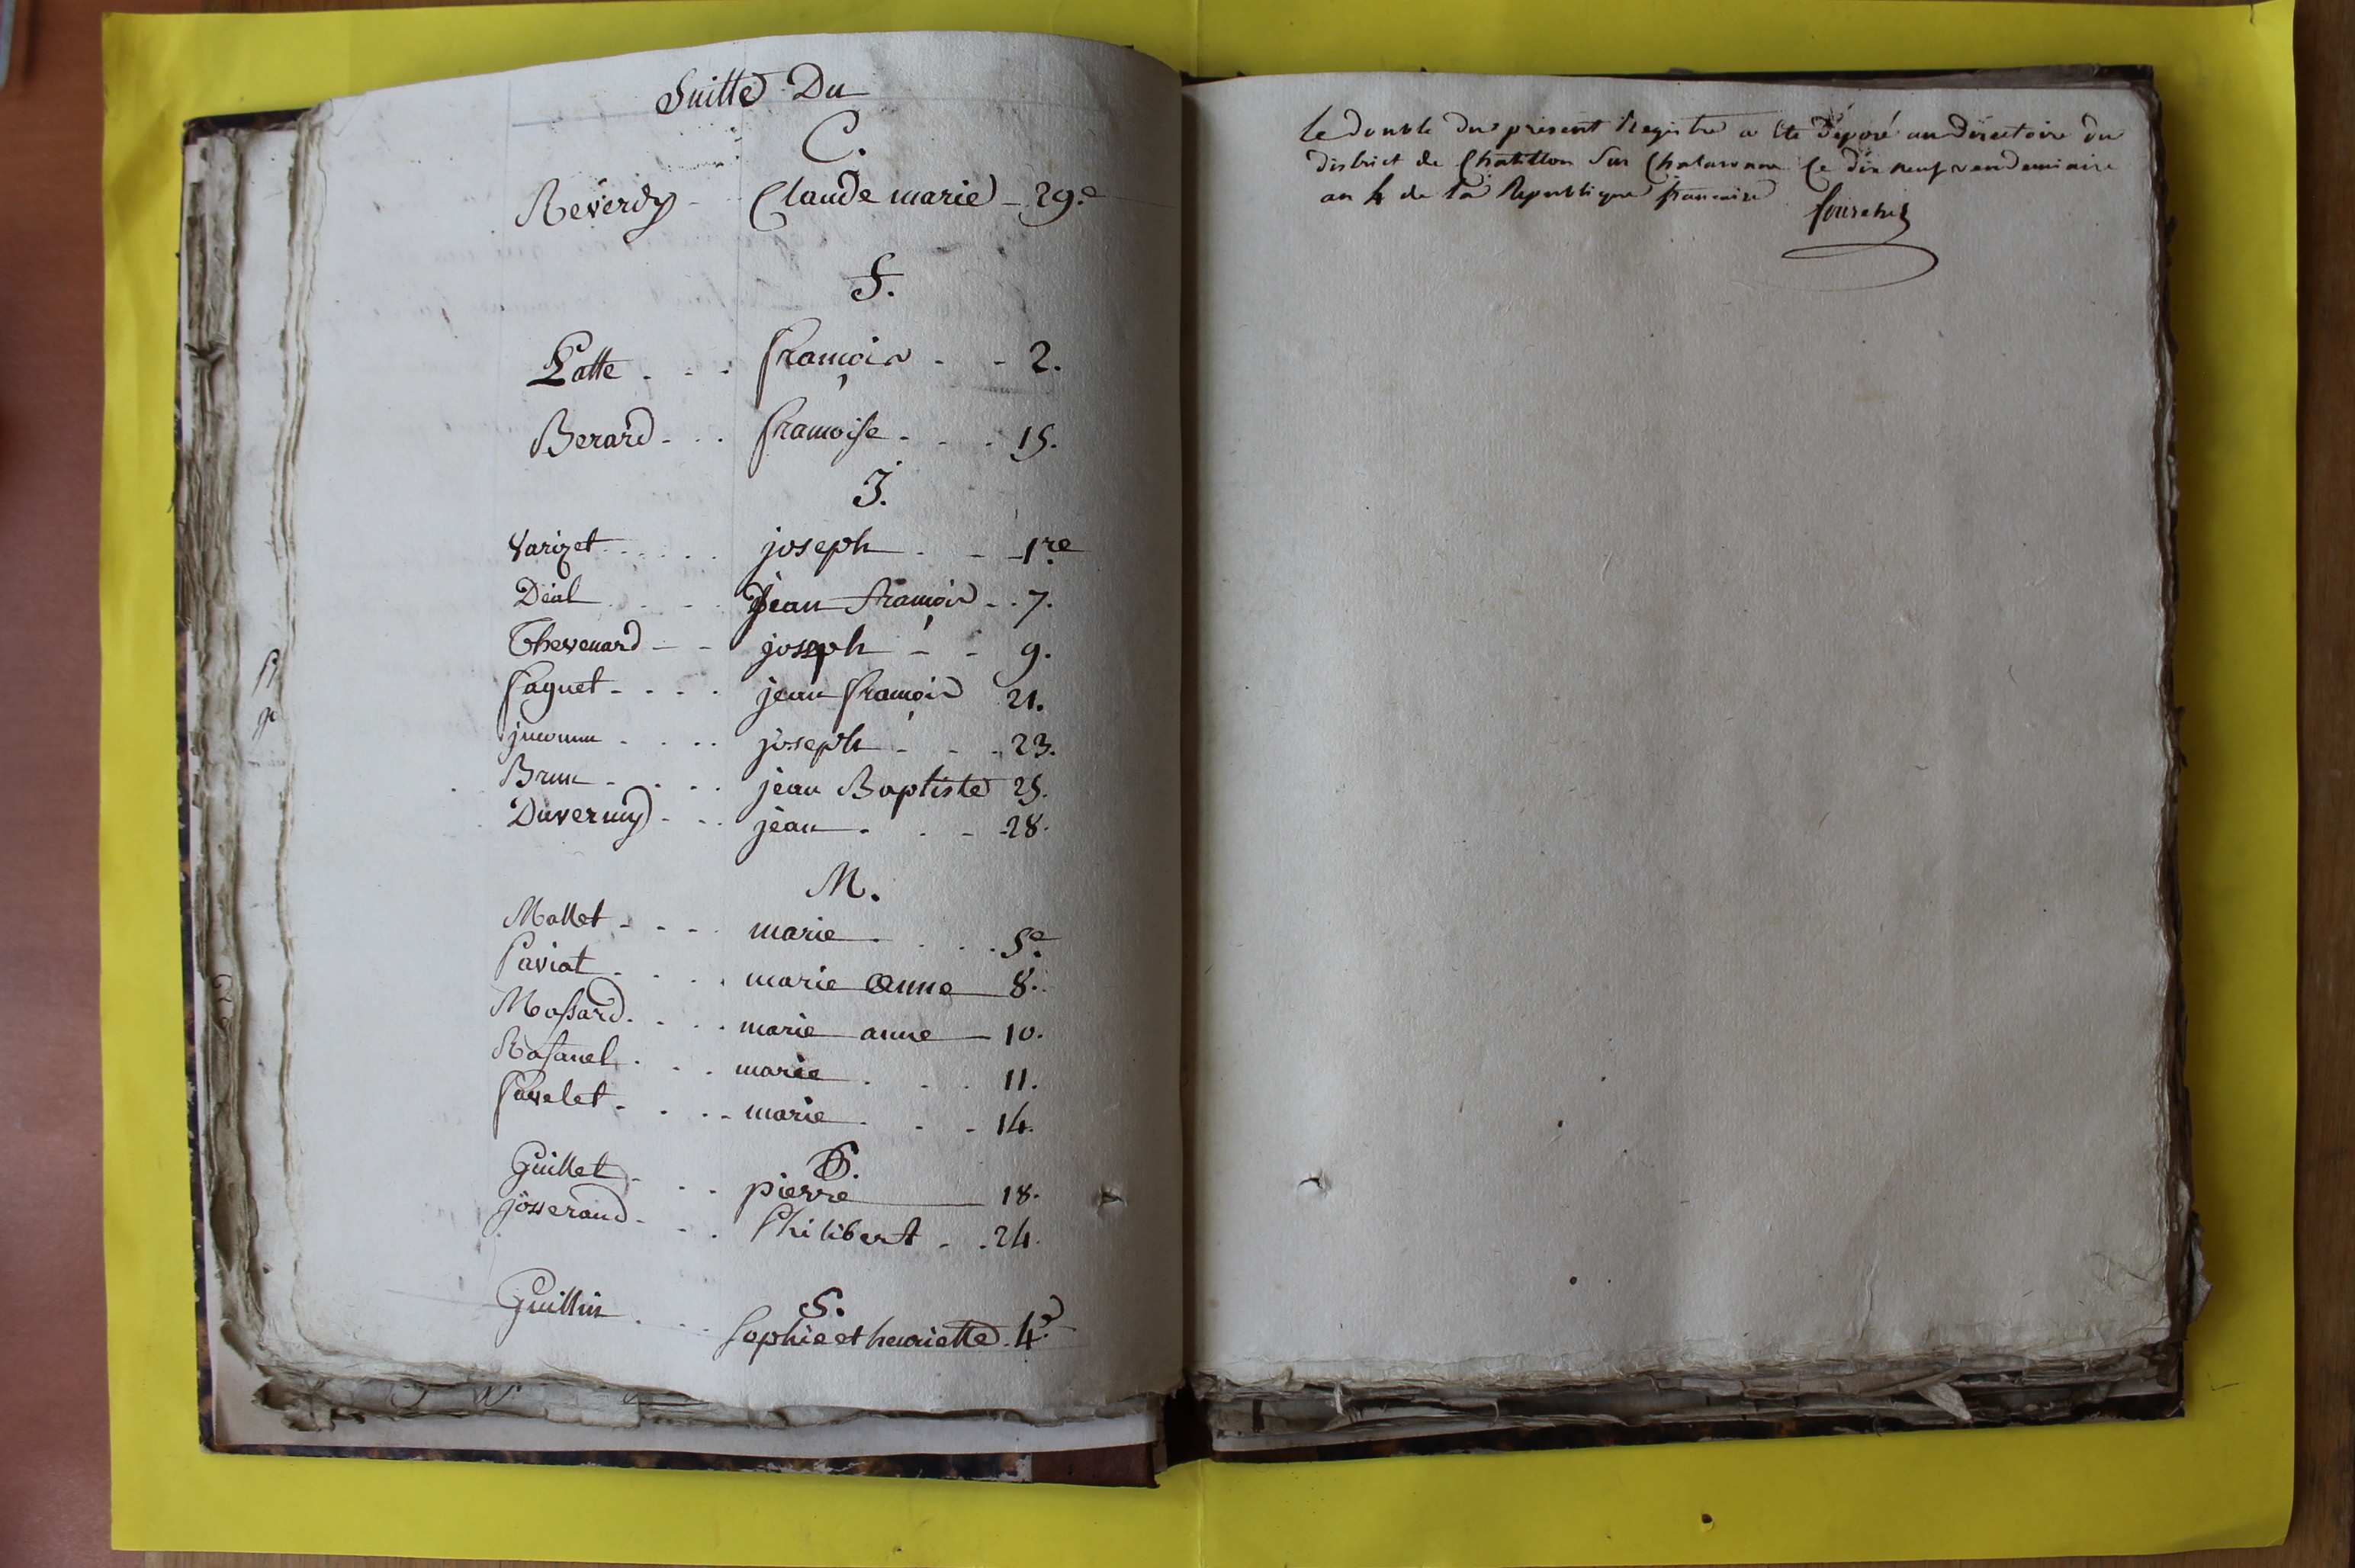 Suitte Du
C.
Reverdy - Claude marie - 29.e
F.
Latte - - - françois - - 2.
Berard - - - francoise - - - 15.
J.
Varizet - - - joseph - - - 1.re
Déal - - - Jean françois - - 7.
Thevenard - - joseph - - 9.
faguet - - - - jean françois 21.
inconnu - - - - joseph - - - 23.
Brun - - - - jean Baptiste 25.
Duverney - - - jean - - - 28.
M.
Mallet - - - - marie - - - 5.e
Paviat - - - - marie Anne 8.
Mossard - - - - marie anne - 10.
marie - - - 11.
favelet - - - - marie - - - 14.
P.
Guillet - - - pierre 18.
josserand - - - Philibert - - 24.
S.
Guillin - - - Sophie et henriette - 4.e
le double du present Registre a été déposé au directoire du
district de Chatillon Sur Chalaronne le dix neuf vendemiaire
an 4 de la Republique francaise